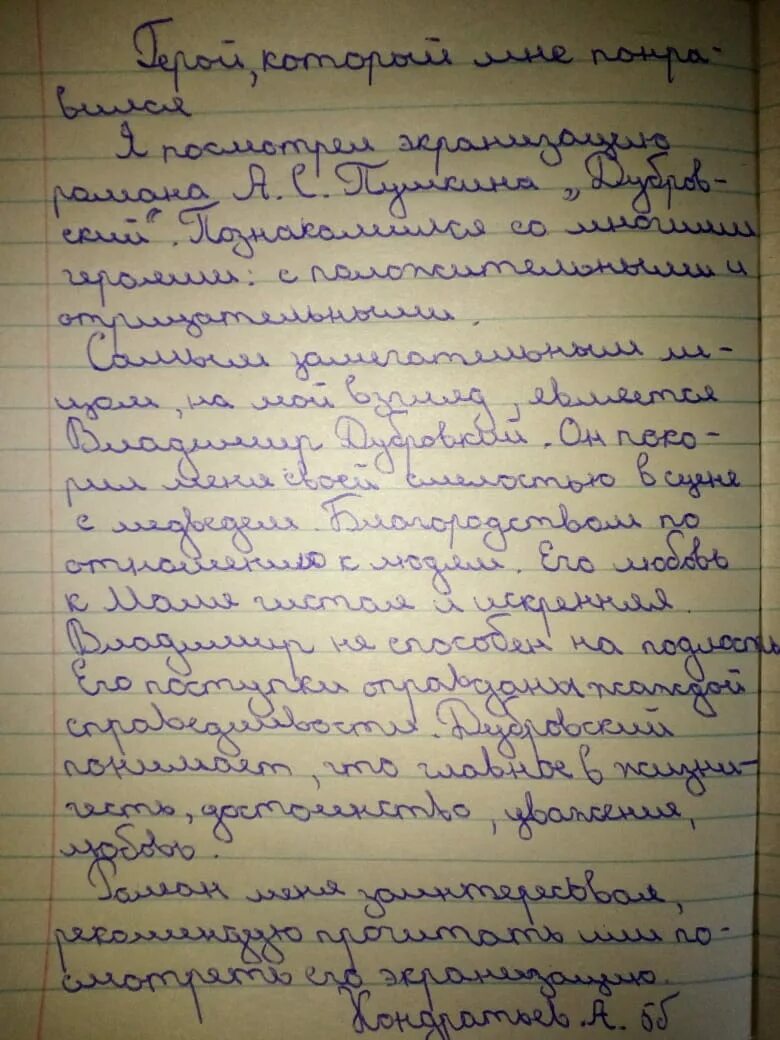 Герой, который мне понра-
вился
Я посмотрел экранизацию
романа А. С. Пушкина „Дубров-
ский“. Познакомился со многими
героями: с положительными и
отрицательными.
Самым замечательным ли-
цом, на мой взгляд, является
Владимир Дубровкой. Он поко-
рил меня своей смелостью в сцене
с медведем. Благородством по
отношению к людям. Его любовь
к Маше чистая и искренняя.
Владимир не способен на подлость
Его поступки оправданы жаждой
справедливости. Дубровский
понимает, что главное в жизни-
честь, достоинство, уважения,
любовь.
Роман меня заинтересовал,
рекомендую прочитать или по-
смотреть его экранизацию.
Кондратьев. А. 5б